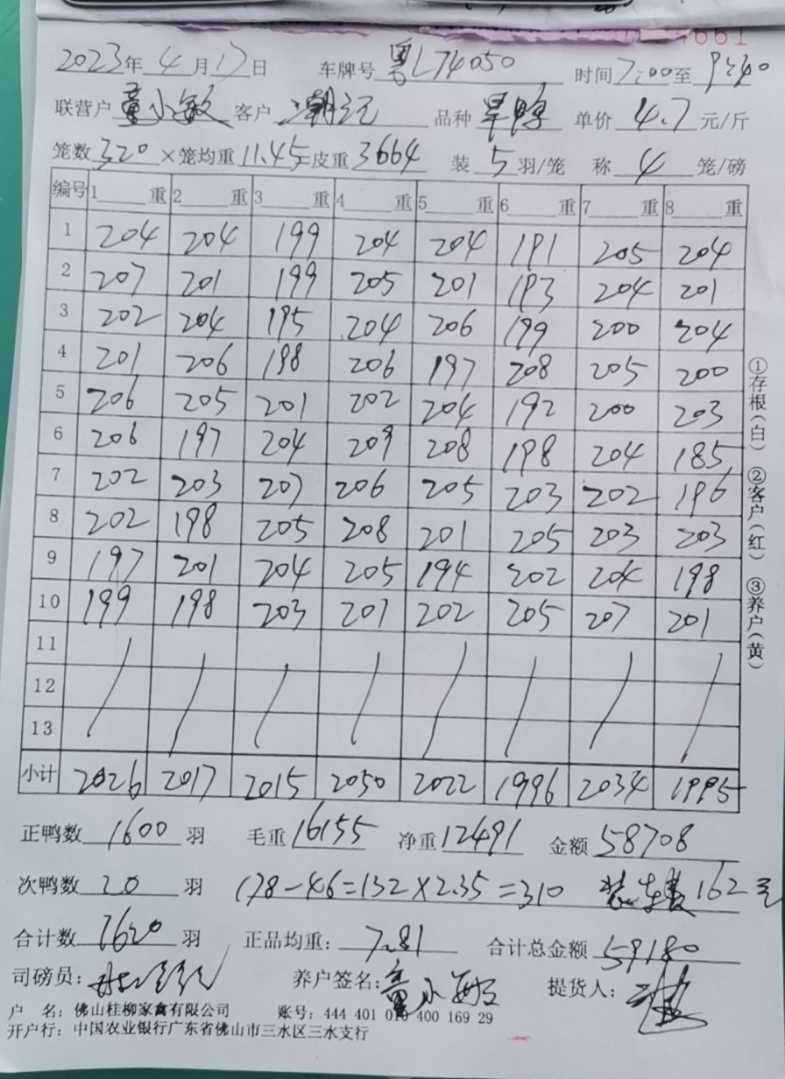 2023年4月17日 车牌号 粤L74050 时间7:00至9:40
联营户 童小敏 客户 潮记 品种 旱鸭 单价 4.7 元/斤
笼数320×笼均重11.45=皮重3664 装5羽/笼 称4笼/磅
编号 1 重 2 重 3 重 4 重 5 重 6 重 7 重 8 重
1 204 204 199 204 204 191 205 204
2 207 201 199 205 201 193 204 201
3 202 204 195 204 206 199 200 204
4 201 206 198 206 197 208 205 200
5 206 205 201 202 204 192 200 203
6 206 197 204 209 208 198 204 185
7 202 203 207 206 205 203 202 196
8 202 198 205 208 201 205 203 203
9 197 201 204 205 194 202 204 198
10 199 198 203 201 202 205 207 201
11
12
13
小计 2026 2017 2015 2050 2022 1996 2034 1995
正鸭数1600羽 毛重16155 净重12491 金额58708
次鸭数20羽 178-46=132×2.35=310 装车费162元
合计数1620羽 正品均重:7.81 合计总金额59180
司磅员: 养户签名:童小敏 提货人:
户 名:佛山桂柳家禽有限公司 账号:444 401 010 400 169 29
开户行:中国农业银行广东省佛山市三水区三水支行
①存根(白) ②客户(红) ③养户(黄)